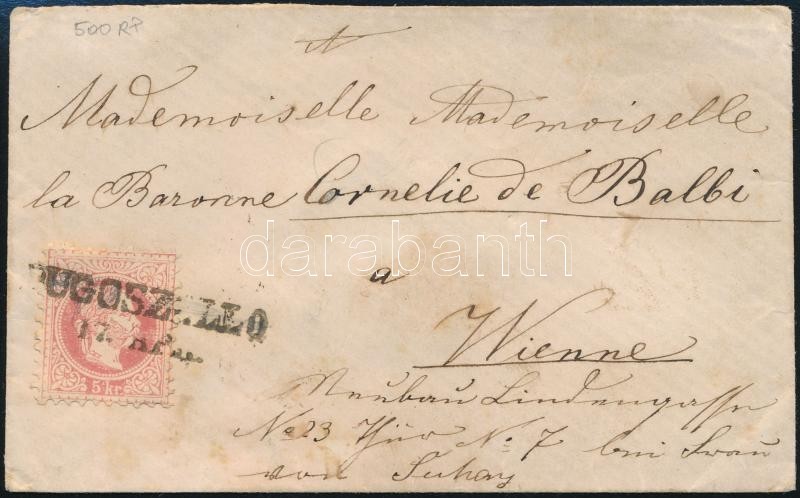 500 RP
A
Mademoiselle Mademoiselle
la Baronne Cornelie de Balbi
darabanth
a
UGOSZ
LLO
17. APR.
Wienne
5 kr.
Neubau Lindengasse
No 23 Thür No 7 bei Frau
von Suhay